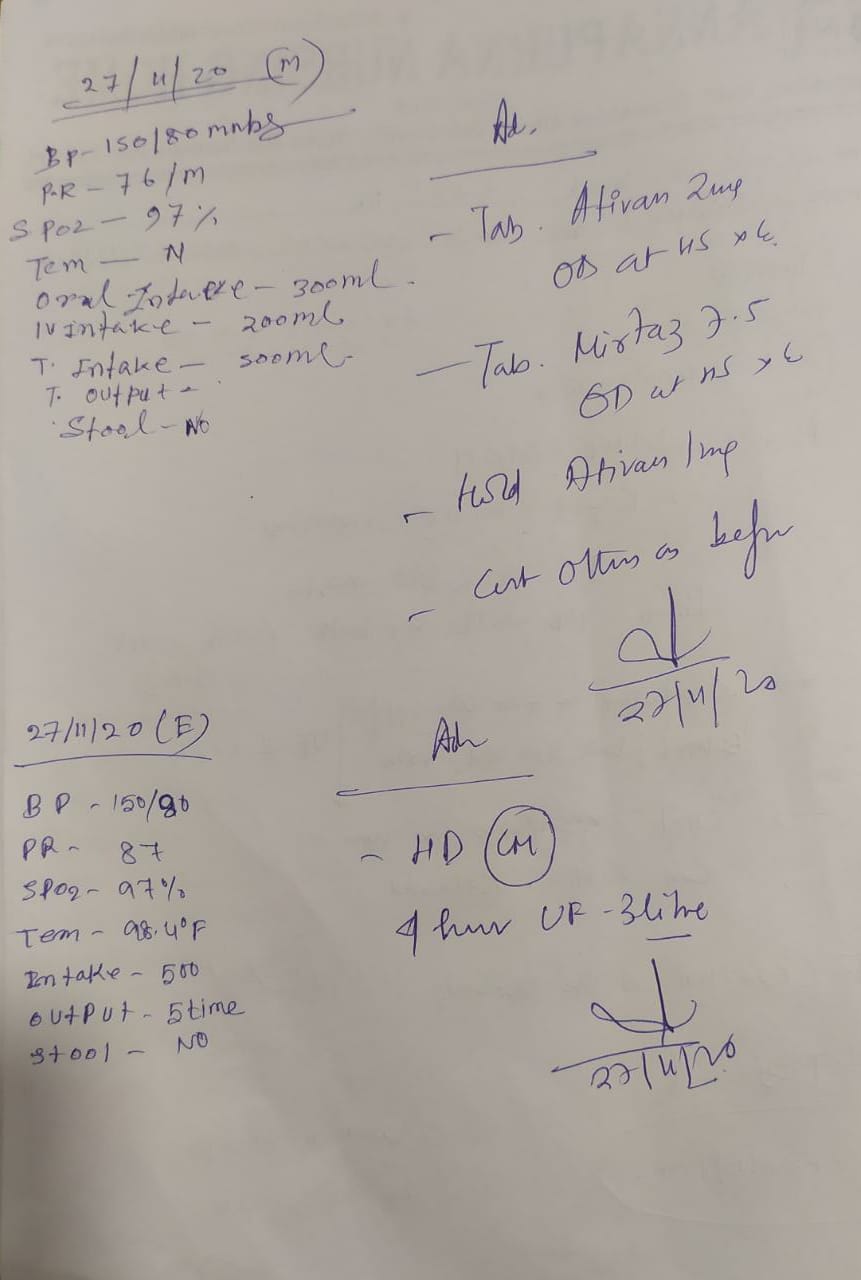 27/11/20 (M)
BP- 150/80 mmhg
P.R - 76/M
SPO2 - 97%
Tem - N
Oral Intake - 300ml.
IV Intake - 200ml
T. Intake - 500ml
T. Output -
Stool - No
Ad.
- Tab. Ativan 2mg
OD at HS x
- Tab. Mirtaz 7.5
OD at HS x
- Hold Ativan 1mg
- Cont others as before
27/11/20
27/11/20 (E)
BP - 150/90
PR - 87
SPO2 - 97%
Tem - 98.4°F
Intake - 500
OUTPUT - 5time
Stool - NO
Adv
- HD (CM)
4 hour UF - 3 litre
27/11/20